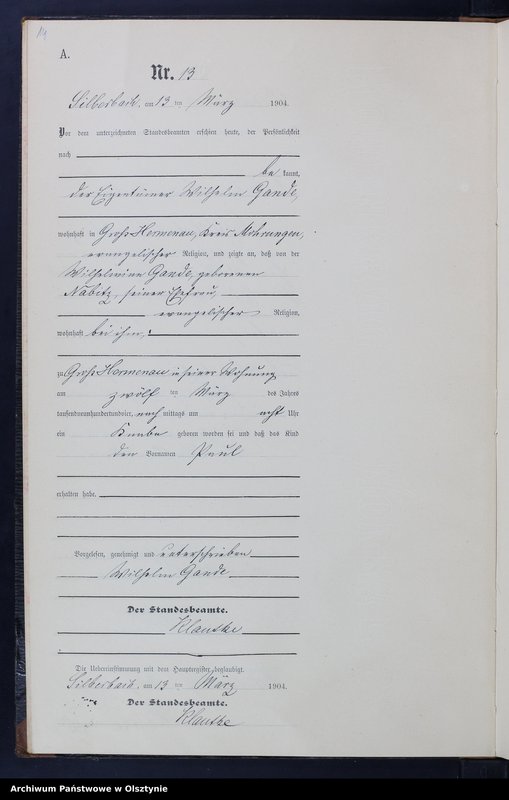 A.
Nr. 13
Silberbach, am 13 ten März 1904.
Vor dem unterzeichneten Standesbeamten erschien heute, der Persönlichkeit
nach
be kannt,
der Eigentümer Wilhelm Gande,
wohnhaft in Groß Hermenau, Kreis Mohrungen,
evangelischer Religion, und zeigte an, daß von der
Wilhelmine Gande, geborenen
Nabitz, seiner Ehefrau,
evangelischer Religion,
wohnhaft bei ihm,
zu Groß Hermenau in seiner Wohnung
am zwölf ten März des Jahres
tausendneunhundertundvier, nach mittags um acht Uhr
ein Knabe geboren worden sei und daß das Kind
den Vornamen Paul
erhalten habe.
Vorgelesen, genehmigt und unterschrieben
Wilhelm Gande
Der Standesbeamte.
Klautke
Die Uebereinstimmung mit dem Hauptregister beglaubigt.
Silberbach, am 13 ten März 1904.
Der Standesbeamte.
Klautke
Archiwum Państwowe w Olsztynie